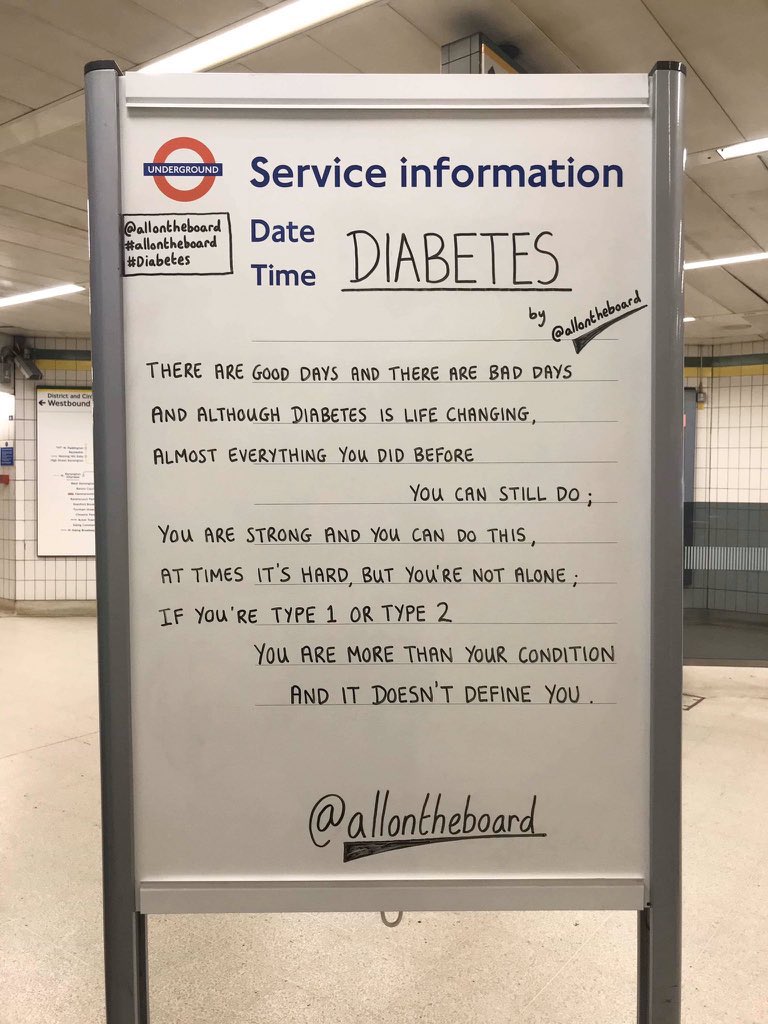 UNDERGROUND
Service information
@allontheboard
#allontheboard
#Diabetes
Date
Time
DIABETES
by @allontheboard
THERE ARE GOOD DAYS AND THERE ARE BAD DAYS
AND ALTHOUGH DIABETES IS LIFE CHANGING,
ALMOST EVERYTHING YOU DID BEFORE
YOU CAN STILL DO;
YOU ARE STRONG AND YOU CAN DO THIS,
AT TIMES IT'S HARD, BUT YOU'RE NOT ALONE;
IF YOU'RE TYPE 1 OR TYPE 2
YOU ARE MORE THAN YOUR CONDITION
AND IT DOESN'T DEFINE YOU.
@allontheboard
District and Circ
← Westbound